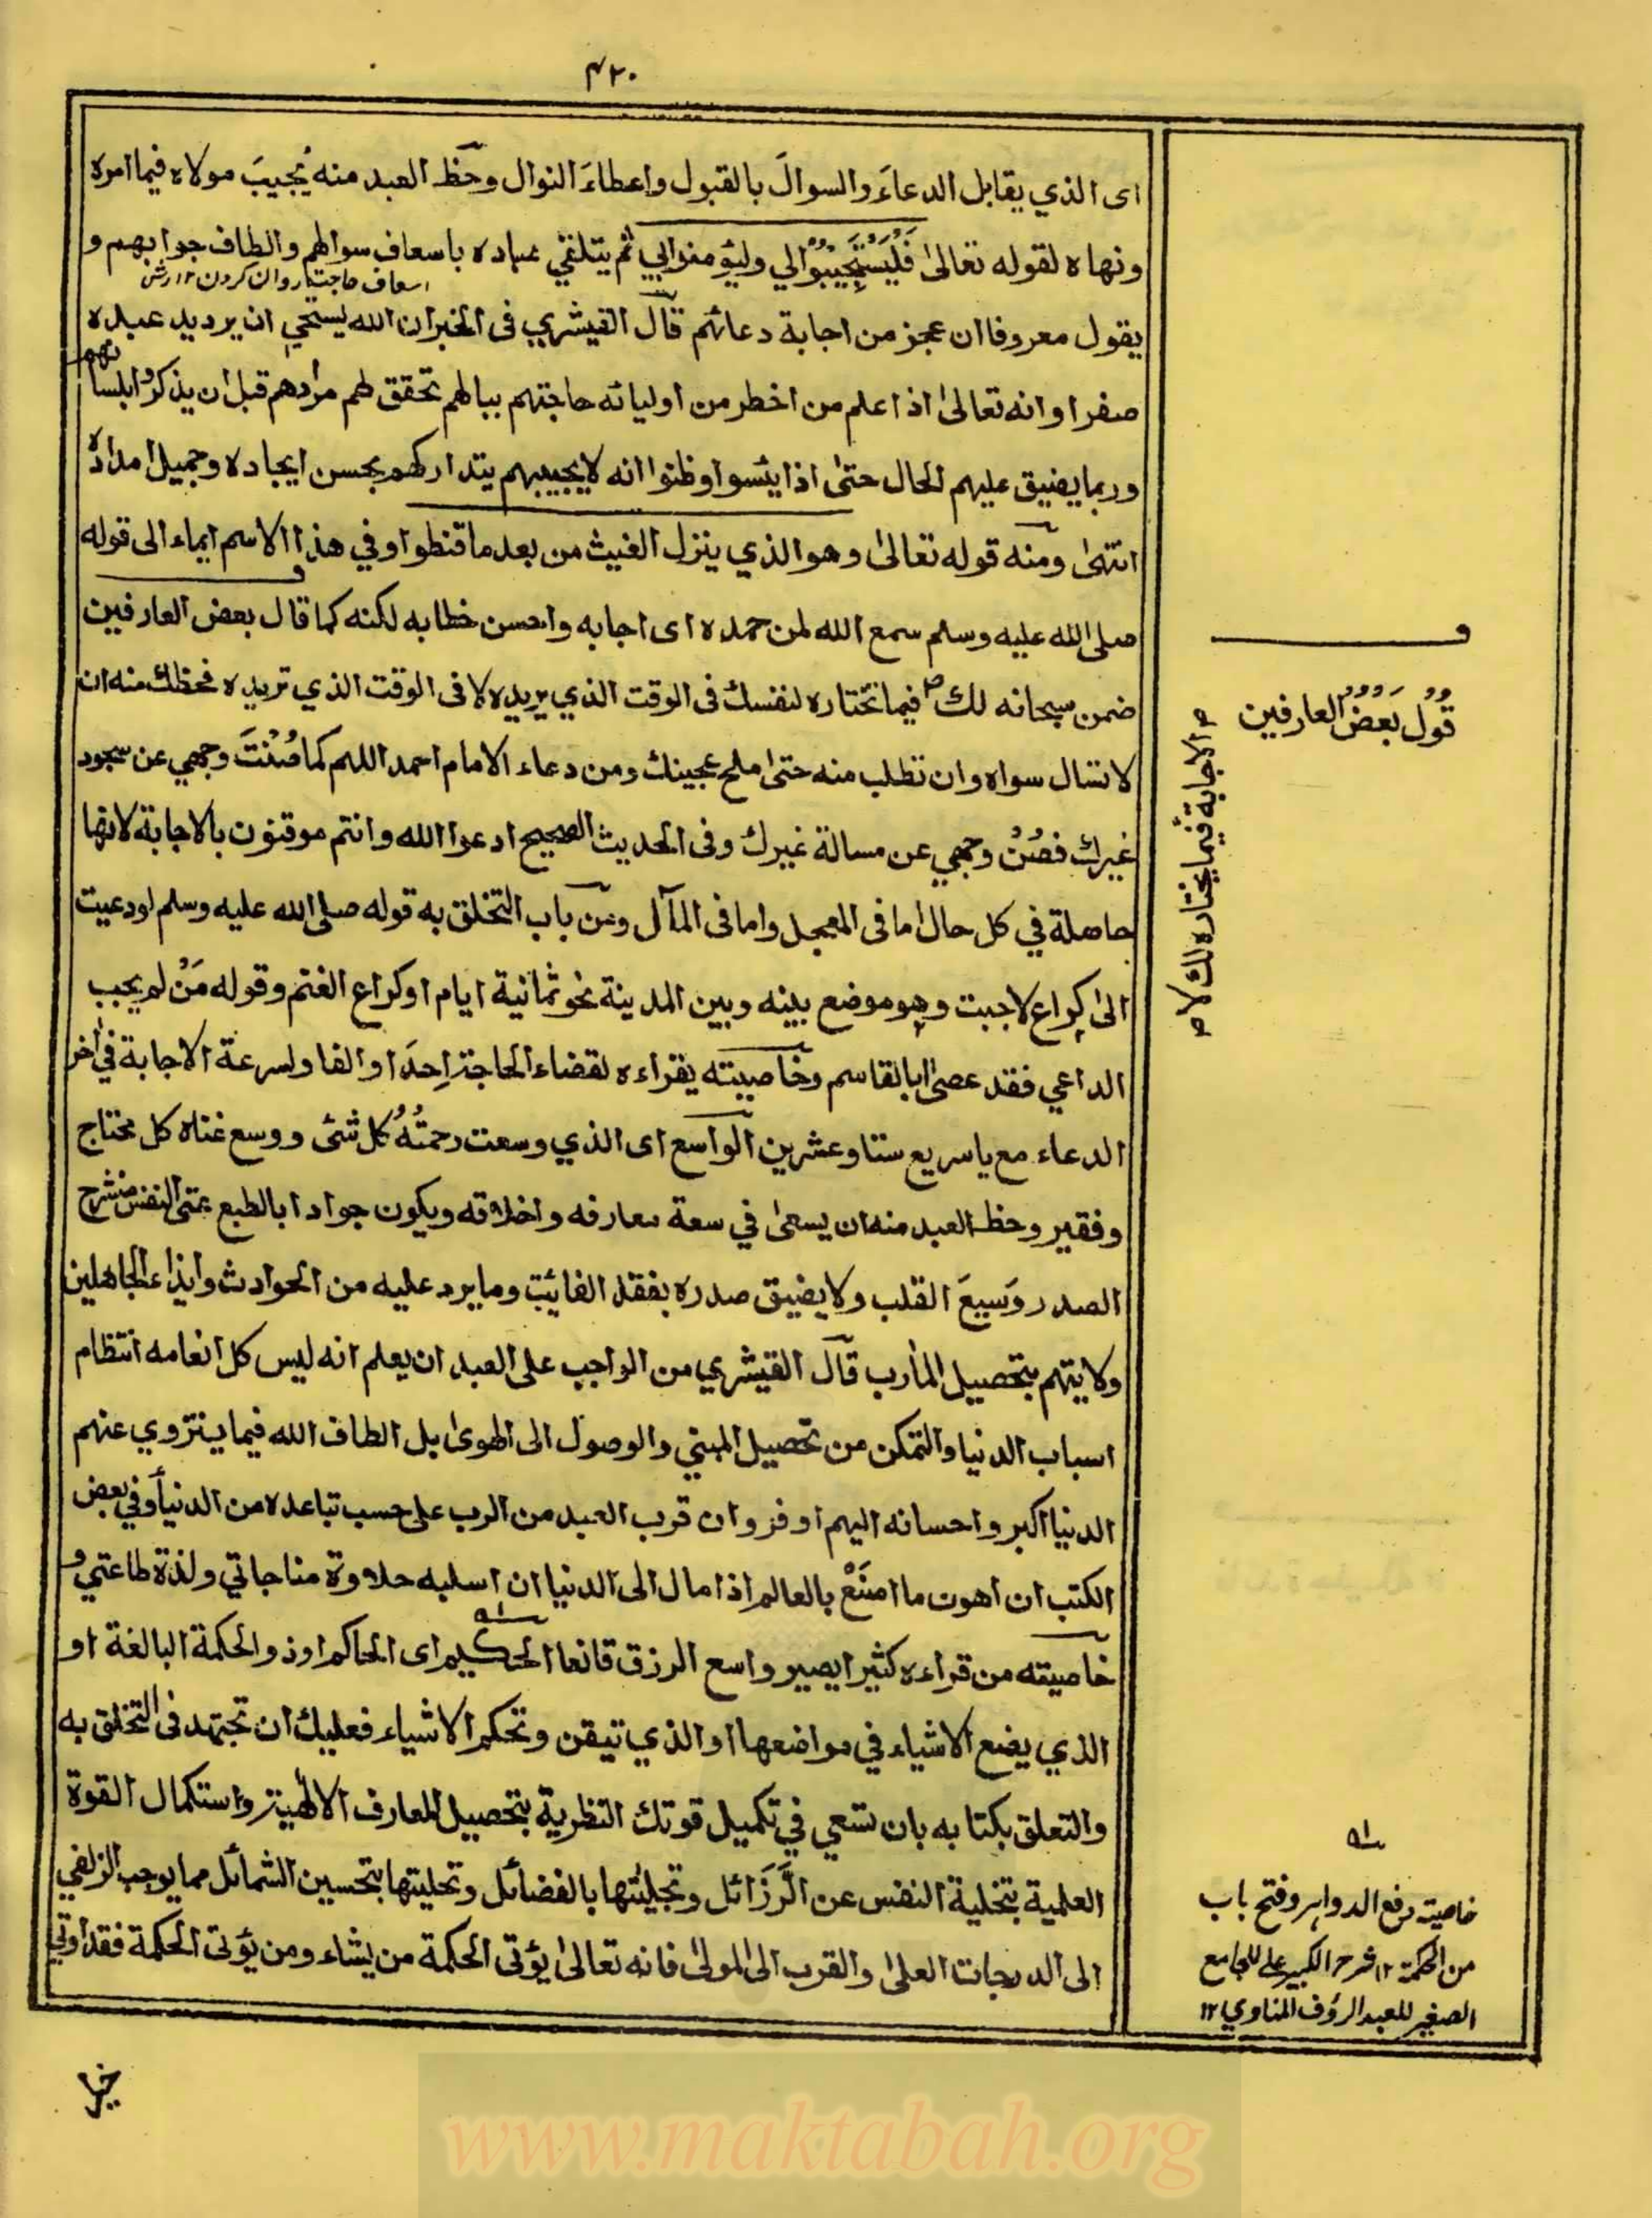 ٤٢٠
اى الذي يقابل الدعاءَ والسوالَ بالقبول واعطاءَ النوال وحظ العبد منه يُجيبَ مولاه فيما امره
ونهاه لقوله تعالىٰ فَلْيَسْتَجِيْبُوْا لي وليؤمنوا بي ثم يتلقي عباده باسعاف سوالهم والطاف جوابهم و
اسعاف حاجت روان كردن ١٢
يقول معروفا ان عجز من اجابة دعائهم قال القيشري فى الخبر ان الله ليستحي ان يرد يد عبده
صفرا وانه تعالىٰ اذا علم من اخطر من اوليائه حاجتهم ببالهم تحقق لهم مرادهم قبل ان يذكروا بلسانهم
وربما يضيق عليهم الحال حتىٰ اذا يئسوا وظنوا انه لا يجيبهم يتداركهم بحسن ايجاده وجميل امداده
انتهىٰ ومنه قوله تعالىٰ وهو الذي ينزل الغيث من بعد ما قنطوا وفي هذا الاسم ايماء الى قوله
صلى الله عليه وسلم سمع الله لمن حمده اى اجابه واحسن خطابه لكنه كما قال بعض العارفين
ضمن سبحانه لك ص فيما تختاره لنفسك فى الوقت الذي يريده لا فى الوقت الذي تريده فحظك منه ان
لا تسال سواه وان تطلب منه حتىٰ ملح عجينك ومن دعاء الامام احمد اللهم كما صُنْتَ وجهي عن سجود
غيرك فصُنْ وجهي عن مسالة غيرك وفى الحديث الصحيح ادعوا الله وانتم موقنون بالاجابة لانها
حاصلة في كل حال اما فى المعجل واما فى المآل ومن باب التخلق به قوله صلى الله عليه وسلم لو دعيت
الىٰ كراع لاجبت وهو موضع بينه وبين المدينة نحو ثمانية ايام او كراع الغنم وقوله مَنْ لم يجب
الداعي فقد عصىٰ ابا القاسم وخاصيته يقراءه لقضاء الحاجة احدا والفا ولسرعة الاجابة في آخر
الدعاء مع يا سريع ستا وعشرين الواسع اى الذي وسعت رحمتُهُ كل شئ ووسع غناه كل محتاج
وفقير وحظ العبد منه ان يسعىٰ في سعة معارفه واخلاقه ويكون جوادا بالطبع غنى النفس منشرح
الصدر وَسيعَ القلب ولا يضيق صدره بفقد الفائت وما يرد عليه من الحوادث وايذاء الجاهلين
ولا يتهم بتحصيل المأرب قال القيشري من الواجب على العبد ان يعلم انه ليس كل انعامه انتظام
اسباب الدنيا والتمكن من تحصيل المبني والوصول الى الهوىٰ بل الطاف الله فيما ينزوي عنهم
الدنيا اكبر واحسانه اليهم اوفر وان قرب العبد من الرب على حسب تباعده من الدنيا وفي بعض
الكتب ان اهون ما اصنَعْ بالعالم اذا مال الى الدنيا ان اسلبه حلاوة مناجاتي ولذة طاعتي و
خاصيته من قراءه كثيرا يصير واسع الرزق قانعا الحكيم اى الحاكم او ذو الحكمة البالغة او
الذي يضع الاشياء في مواضعها او الذي تيقن وتحكم الاشياء فعليك ان تجتهد فى التخلق به
والتعلق بكتابه بان تسعي في تكميل قوتك النظرية بتحصيل المعارف الالٰهية واستكمال القوة
العلمية بتخلية النفس عن الرَّزَائل وتجليتها بالفضائل وتحليتها بتحسين الشمائل مما يوجب الزلفي
الى الدرجات العلىٰ والقرب الى المولىٰ فانه تعالىٰ يؤتى الحكمة من يشاء ومن يؤتى الحكمة فقد اوتي
خيرا
قول بعض العارفين
ص الاجابة فيما يختاره لك لا ص
خاصيته دفع الدواهر وفتح باب
من الحكمة ١٢ شرح الكبير على للجامع
الصغير للعبد الرؤف المناوي ١٢
www.maktabah.org